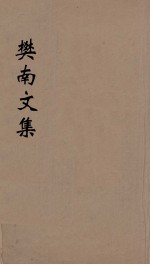 樊南文集